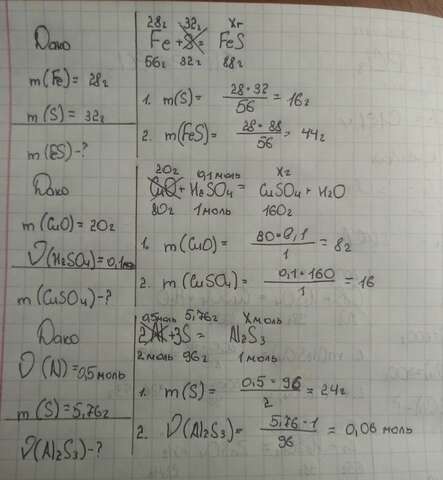 Дано
m(Fe) = 28г
m(S) = 32г
m(FeS) - ?
28г 32г xг
Fe + S = FeS
56г 32г 88г
1. m(S) = 28·32 / 56 = 16г
2. m(FeS) = 28·88 / 56 = 44г
Дано
m(CuO) = 20г
ν(H2SO4) = 0,1моль
m(CuSO4) - ?
20г 0,1моль xг
CuO + H2SO4 = CuSO4 + H2O
80г 1моль 160г
1. m(CuO) = 80·0,1 / 1 = 8г
2. m(CuSO4) = 0,1·160 / 1 = 16
Дано
ν(Al) = 0,5моль
m(S) = 5,76г
ν(Al2S3) - ?
0,5моль 5,76г xмоль
2Al + 3S = Al2S3
2моль 96г 1моль
1. m(S) = 0,5·96 / 2 = 24г
2. ν(Al2S3) = 5,76·1 / 96 = 0,06 моль